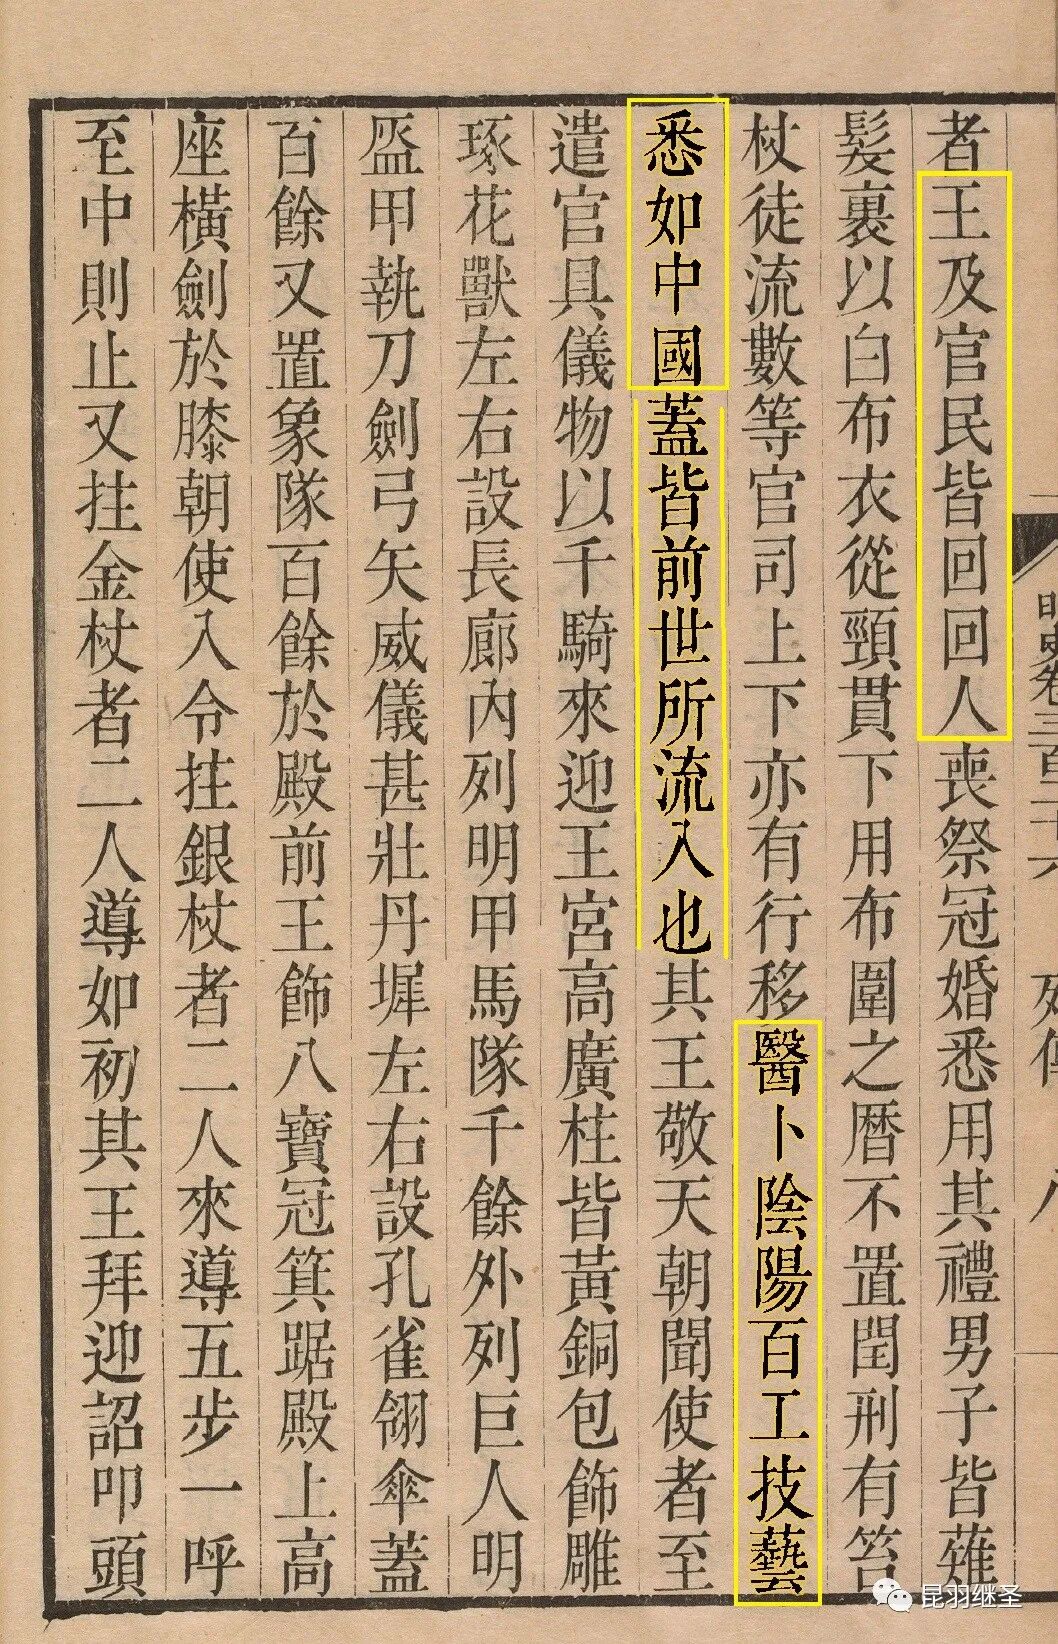 明史卷三百二十六 列傳 八
者王及官民皆回回人喪祭冠婚悉用其禮男子皆薙
髮裹以白布衣從頸貫下用布圍之曆不置閏刑有笞
杖徒流數等官司上下亦有行移醫卜陰陽百工技藝
悉如中國蓋皆前世所流入也其王敬天朝聞使者至
遣官具儀物以千騎來迎王宮高廣柱皆黃銅包飾雕
琢花獸左右設長廊內列明甲馬隊千餘外列巨人明
盔甲執刀劍弓矢威儀甚壯丹墀左右設孔雀翎傘蓋
百餘又置象隊百餘於殿前王飾八寶冠箕踞殿上高
座橫劍於膝朝使入令拄銀杖者二人來導五步一呼
至中則止又拄金杖者二人導如初其王拜迎詔叩頭
昆羽继圣